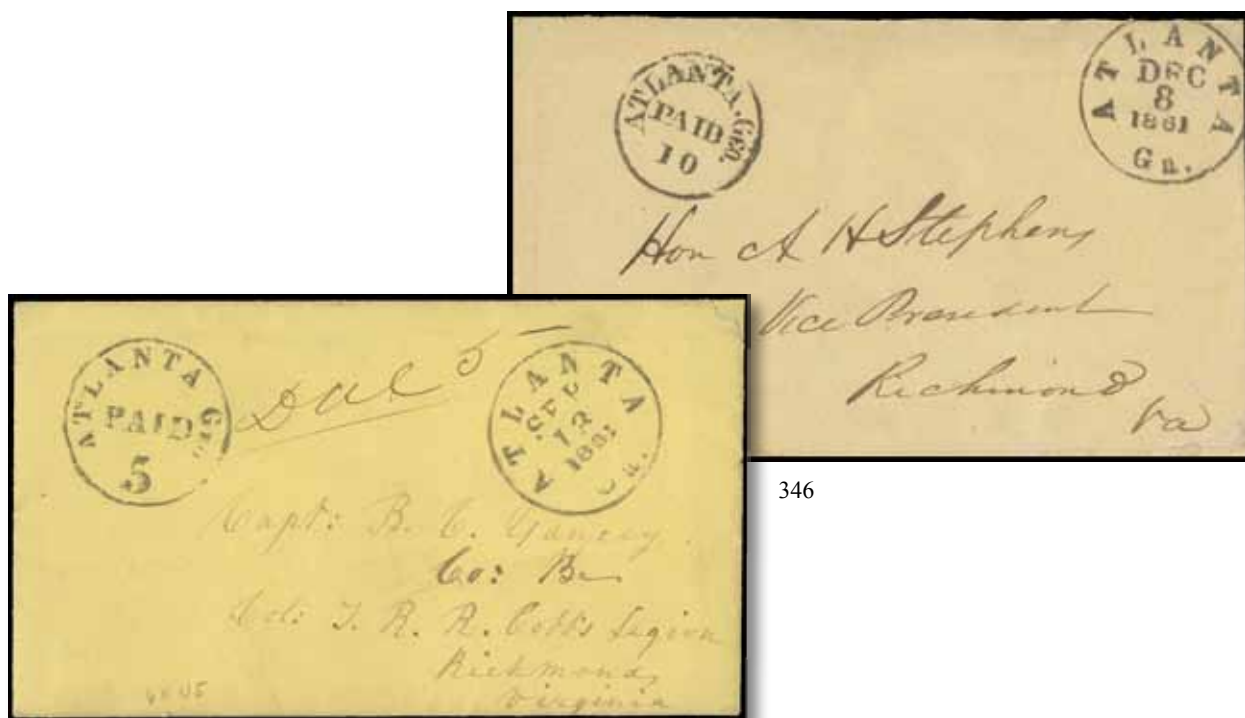 ATLANTA. GEO.
PAID
10
ATLANTA
DEC
8
1861
Ga.
Hon A H Stephens
Vice President
Richmond
Va
346
ATLANTA GEO.
PAID
5
Due 5
ATLANTA
SEP
1861
Ga.
Capt: B. C. Yancey
Co: B
Col: T. R. R. Cobbs Legion
Richmond,
Virginia